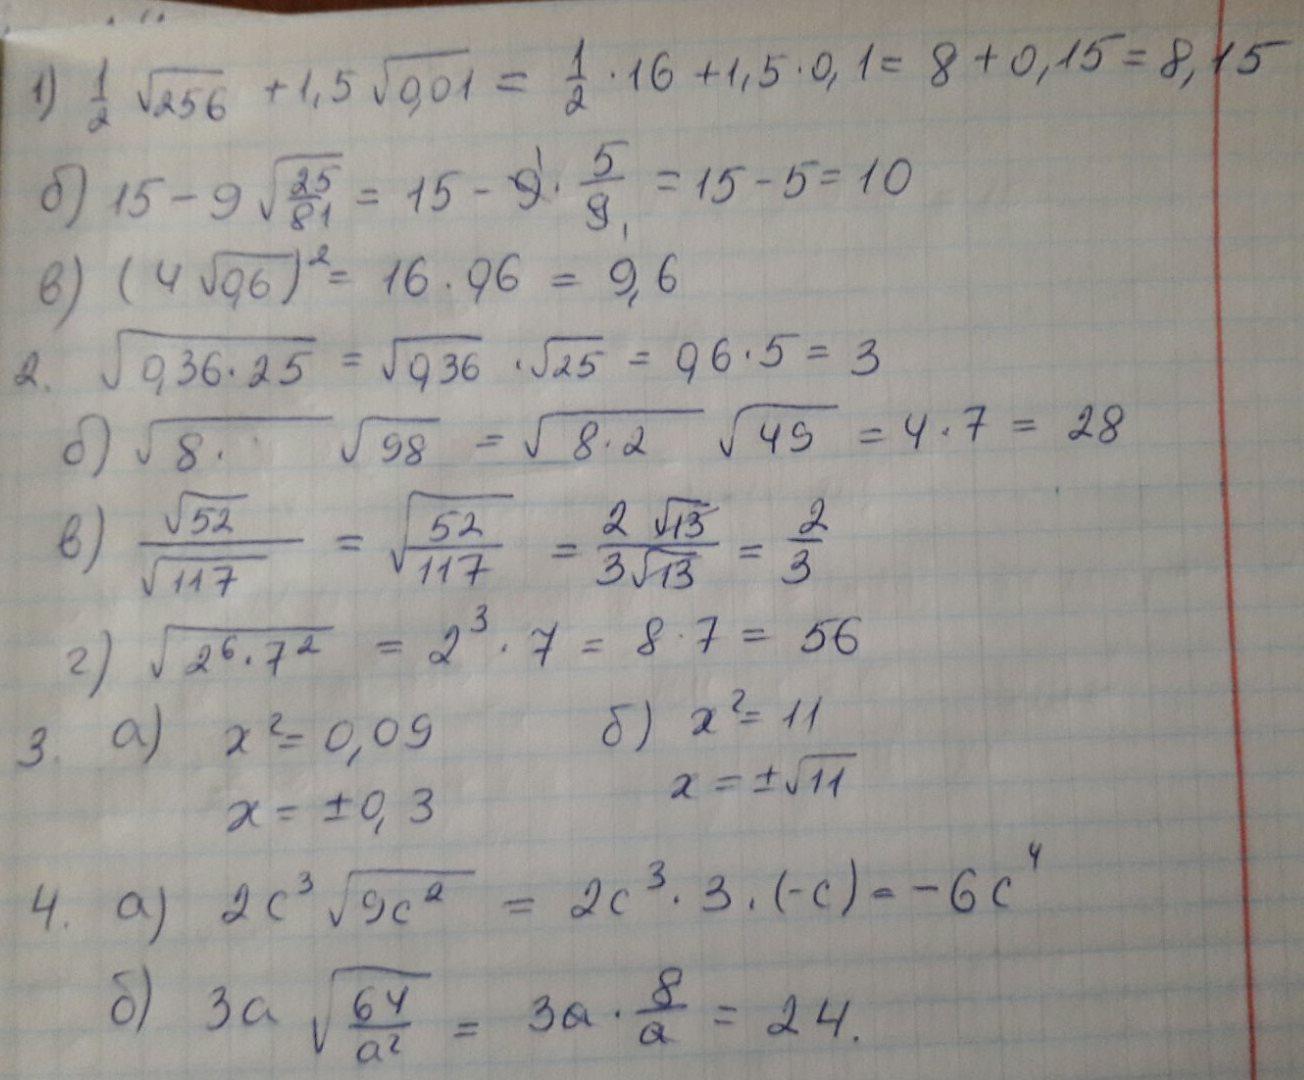 1) 1/2 √256 + 1,5 √0,01 = 1/2 · 16 + 1,5 · 0,1 = 8 + 0,15 = 8,15
б) 15 - 9 √(25/81) = 15 - 9 · 5/9 = 15 - 5 = 10
в) (4 √0,6)² = 16 · 0,6 = 9,6
2. √(0,36 · 25) = √0,36 · √25 = 0,6 · 5 = 3
б) √8 · √98 = √(8 · 2) √49 = 4 · 7 = 28
в) √52/√117 = √(52/117) = 2√13/3√13 = 2/3
г) √(2⁶ · 7²) = 2³ · 7 = 8 · 7 = 56
3. а) x² = 0,09 б) x² = 11
x = ±0,3 x = ±√11
4. а) 2c³ √(9c²) = 2c³ · 3 · (-c) = -6c⁴
б) 3a √(64/a²) = 3a · 8/a = 24.